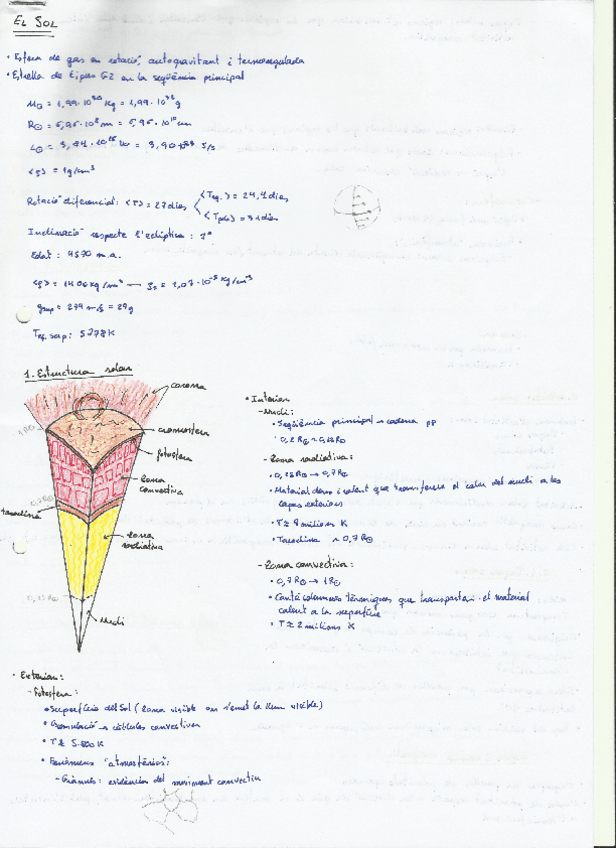 EL SOL
• Esfera de gas en rotació, autogravitant i termoregulada
• Estrella de tipus G2 en la seqüència principal
M⊙ = 1,99·10³⁰ Kg = 1,99·10³³ g
R⊙ = 6,96·10⁸ m = 6,96·10¹⁰ cm
L⊙ =
Rotació diferencial: <T> = 27 dies
<Teq.> = 24,7 dies
<Tpols> = 34 dies
Inclinació respecte l'eclíptica: 7°
Edat: 4570 m.a.
= 274 m/s = 28g
Tef. sup: 5778 K
1. Estructura solar
corona
cromosfera
fotosfera
Zona convectiva
tacoclina
0,7R⊙
Zona radiativa
Nucli
• Interior
- Nucli:
• Seqüència principal → cadena pp
- Zona radiativa:
→ 0,7R⊙
• Material dens i calent que transfereix el calor del nucli a les
capes exteriors
• T ≈ 8 milions K
• Tacoclina ~ 0,7R⊙
- Zona convectiva:
• 0,7R⊙ → 1R⊙
• Conté columnes tèrmiques que transporten el material
calent a la superfície
• T ≈ 2 milions K
• Exterior:
- Fotosfera:
• Superfície del Sol (zona visible on s'emet la llum visible)
• Granulació → cèl·lules convectives
• T ≈ 5800 K
• Fenòmens "atmosfèrics":
- Grànuls: evidències del moviment convectiu